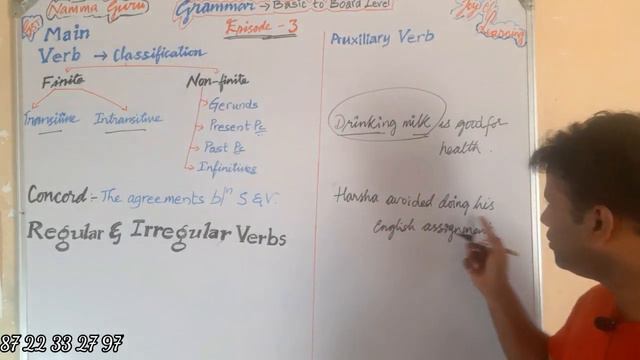 Namma Guru
Grammar → Basic to Board Level
Joy of Learning
Episode - 3
Main
Verb → Classification
Finite
Non-finite
Transitive
Intransitive
Gerunds
Present Pc
Past Pc
Infinitives
Concord:- The agreements b/n S & V.
Regular & Irregular Verbs
Auxiliary Verb
Drinking milk is good for
health.
Harsha avoided doing his
English assignment
87 22 33 27 97